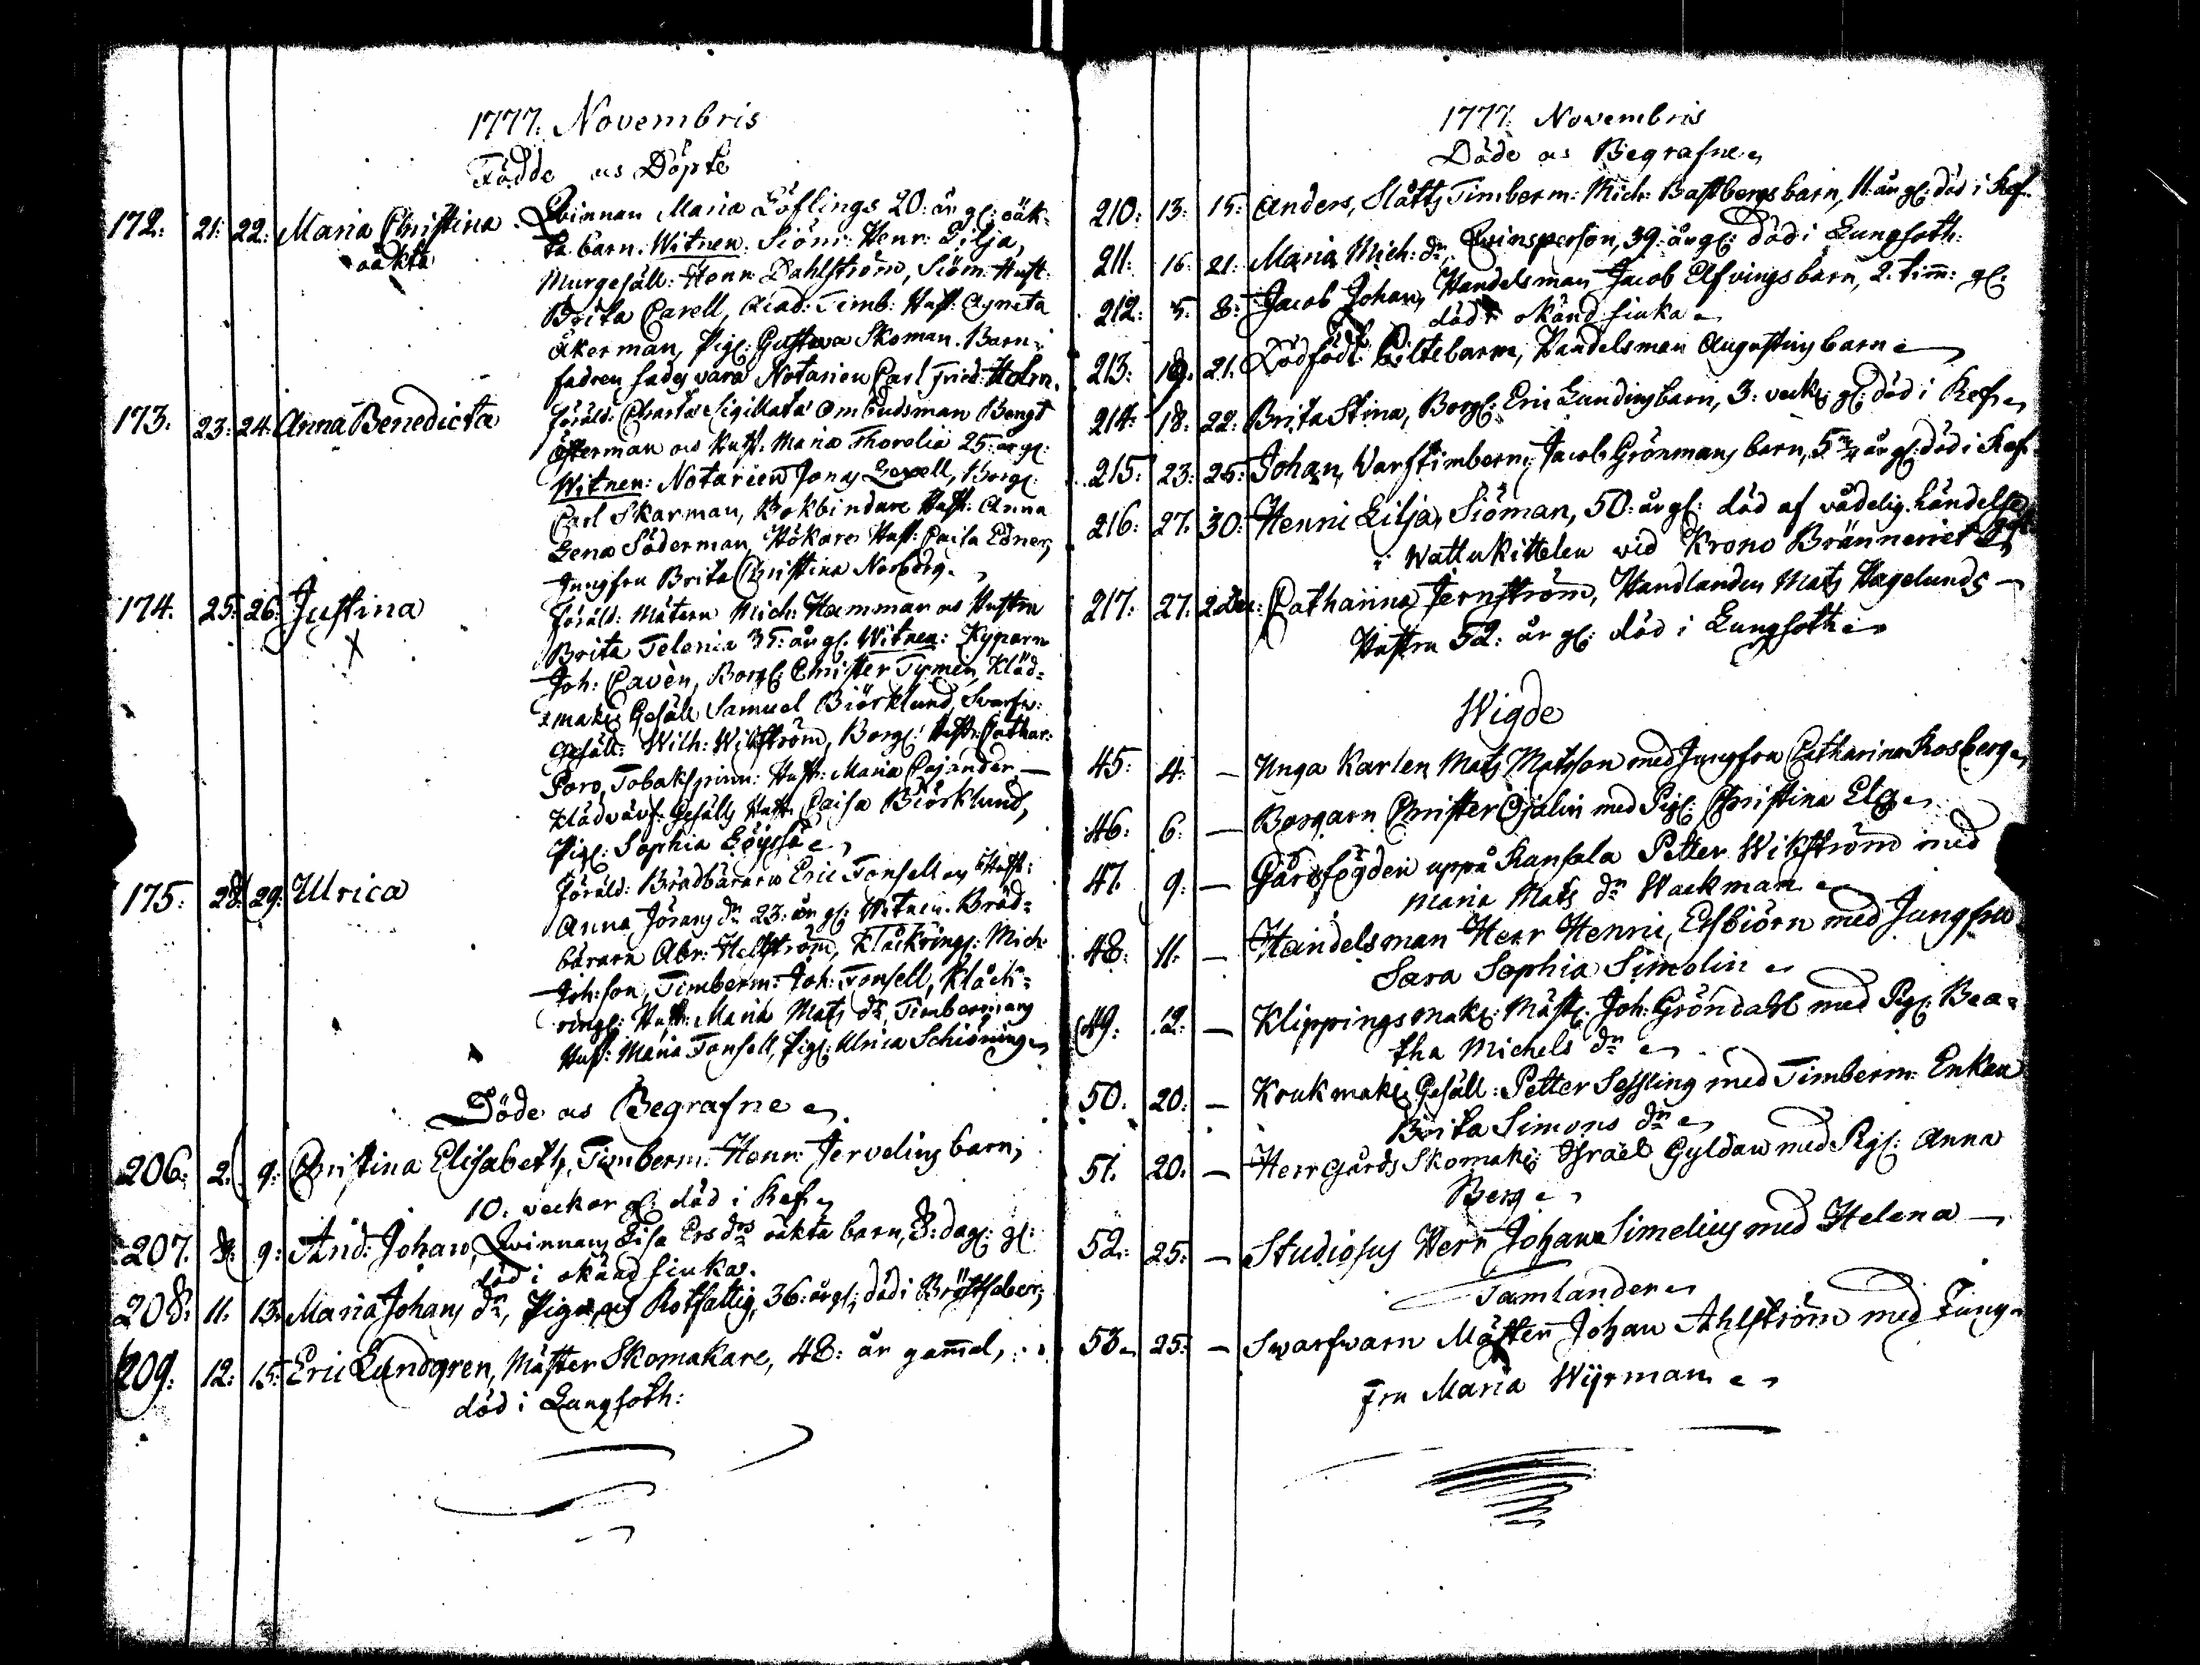 1777. Novembris
Födde os Döpte
172. 21: 22: Maria Christina Qvinnan Maria Löflings 20: år gl: oäk-
oäkta ta barn. Witnen: Siöm: Henr: Lilja,
Murgesäll: Henr: Dahlström, Siöm: Hust:
Brita Carell, Acad: Timb: Hust: Agneta
Åkerman, Pig: Gustava Skoman. Barn-
fadren sades vara Notarien Carl Fried: Holm.
173. 23: 24: Anna Benedicta Föräld: Charta Sigillata Ombudsman Bengt
Österman os Hust: Maria Thorelia 25: år gl:
Witnen: Notarien Jonas Lexell, Borg:
Carl Skarman, Bokbindare Hust: Anna
Lena Söderman, Hökare Hust: Caisa Edner,
Jungfru Brita Christina Norberg.
174. 25: 26: Justina Föräld: Mätarn Mich: Hammar os Hustru
X Brita Telenia 35: år gl: Witnen: Kyparn
Joh: Cavèn, Borg: Christer Tymen, Kläd-
mak: Gesäll Samuel Biörklund, Svarfv:
Gesäll: Wilh: Wikström, Borg: Hust: Cathar:
Poro, Tobakspinn: Hust: Maria Cajander
Klädväf: Gesälls Hust: Caisa Biörklund,
Pig: Sophia
175: 28: 29: Ulrica Föräld: Brödbärare Eric Fonsell os Hust:
Anna Jörans dr 23: år gl: Witnen: Bröd-
bärarn Abr: Hellström, Klåckring: Mich:
Joh:son, Timberm: Joh: Fonsell, Klåck-
ring: Hust: Maria Mats dr, Timbermans
Hust: Maria Fonsell, Pig: Ulrica Schiöning
Döde os Begrafne
206: 2. 9: Christina Elisabeth, Timberm: Henr: Jervelius barn,
10. veckor gl: död i Kef.
207. 8: 9: And: Johan, Qvinnans Lisa Ersdrs oäkta barn, 8: dag: gl:
död i okänd siuka.
208. 11. 13. Maria Johans dr, Piga, os Rotfattig, 36: år gl: död i Bröstfeber,
209. 12: 15: Eric Lundgren, Mäster Skomakare, 48: år gammal,
död i Lungsoth:
1777. Novembris
Döde os Begrafne
210: 13: 15: Anders, Slåtts Timberm: Mich: Bastbergs barn, 11. år gl: död i Kef.
211: 16: 21: Maria Mich: dr, Qvinsperson, 39: år gl: död i Lungsoth:
212: 5: 8: Jacob Johan, Handelsman Jacob Elfvings barn, 2. tim: gl:
död i okänd siuka
213: 19. 21. Dödfödt Piltebarn, Handelsman Augustins barn
214: 18: 22: Brita Stina, Borg: Eric Lundins barn, 3: veck: gl: död i Kef.
215: 23: 25: Johan, Varfstimberm: Jacob Grönmans barn, 5 år gl: död i Kef.
216: 27. 30: Henric Lilja, Siöman, 50: år gl: död af vådelig händelse
i Wattukittelen vid Krono Bränneriet
217: 27. 2 dec: Catharina Jernström, Handlanden Mats Hagelunds
Hustru 52: år gl: död i Lungsoth
Wigde
45: 4: — Unga Karlen Mats Matsson med Jungfru Catharina Rosberg
46: 6: — Borgarn Christer Ojalin med Pig: Christina Elg
47. 9: — Gårdsfogden uppå Kansala Petter Wikström med
Maria Mats dr Wackman
48: 11. — Handelsman Herr Henric Elfbiörn med Jungfru
Sara Sophia Simolin
49: 12: — Klippingsmak: Mäst: Joh: Gröndahl med Pig: Bea-
tha Michels dr
50. 20: — Krukmak: Gesäll: Petter Sessling med Timberm: Enkan
Brita Simons dr
51. 20: — Herrgårds Skomak: Israel Gyldan med Pig: Anna
Berg
52: 25: — Studiosus Herr Johan Simelius med Helena
Tamlander
53. 25: — Svarfvarn Mästern Johan Ahlström med Jung-
fru Maria Wijrman